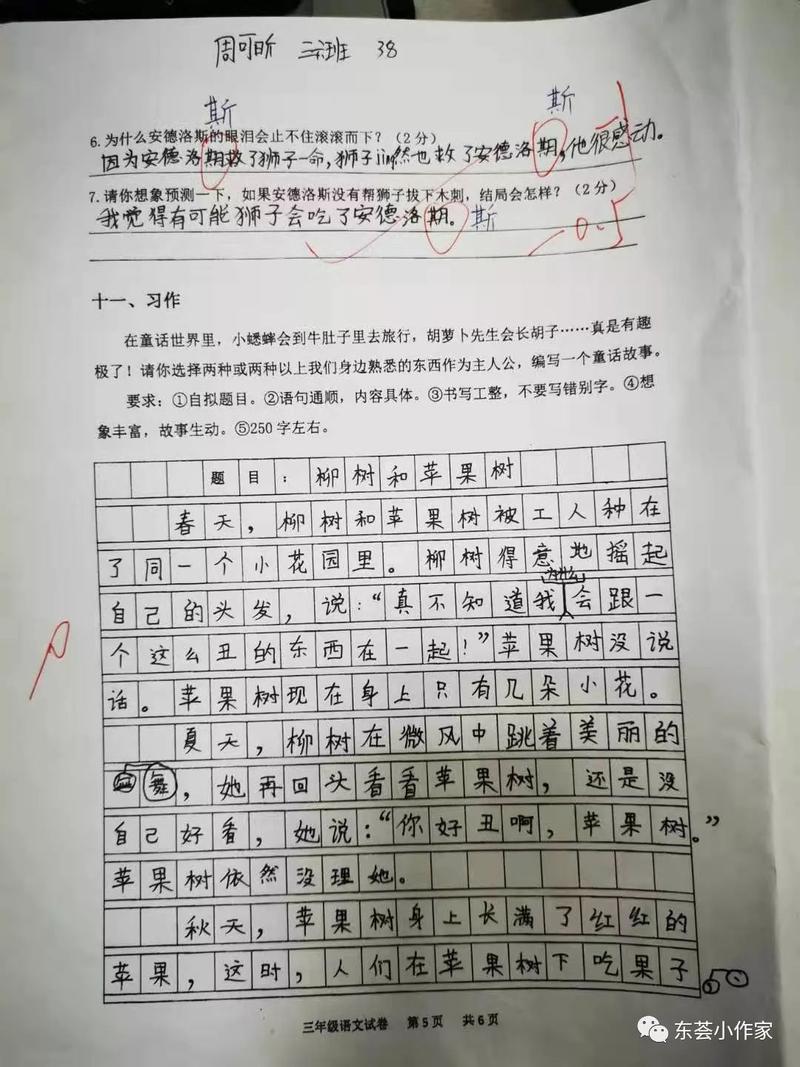 周可昕 三6班 38
斯 斯
6.为什么安德洛斯的眼泪会止不住滚滚而下？（2分）
因为安德洛期救了狮子一命，狮子jū然也救了安德洛期，他很感动。
7.请你想象预测一下，如果安德洛斯没有帮狮子拔下木刺，结局会怎样？（2分）
我觉得有可能狮子会吃了安德洛期。斯
-0.5
十一、习作
在童话世界里，小蟋蟀会到牛肚子里去旅行，胡萝卜先生会长胡子……真是有趣
极了！请你选择两种或两种以上我们身边熟悉的东西作为主人公，编写一个童话故事。
要求：①自拟题目。②语句通顺，内容具体。③书写工整，不要写错别字。④想
象丰富，故事生动。⑤250字左右。
题目：柳树和苹果树
春天，柳树和苹果树被工人种在
了同一个小花园里。柳树得意地摇起
为什么
自己的头发，说：“真不知道我会跟一
个这么丑的东西在一起！”苹果树没说
话。苹果树现在身上只有几朵小花。
夏天，柳树在微风中跳着美丽的
舞，她再回头看看苹果树，还是没
自己好看，她说：“你好丑啊，苹果树。”
苹果树依然没理她。
秋天，苹果树身上长满了红红的
苹果，这时，人们在苹果树下吃果子
三年级语文试卷 第5页 共6页
东荟小作家